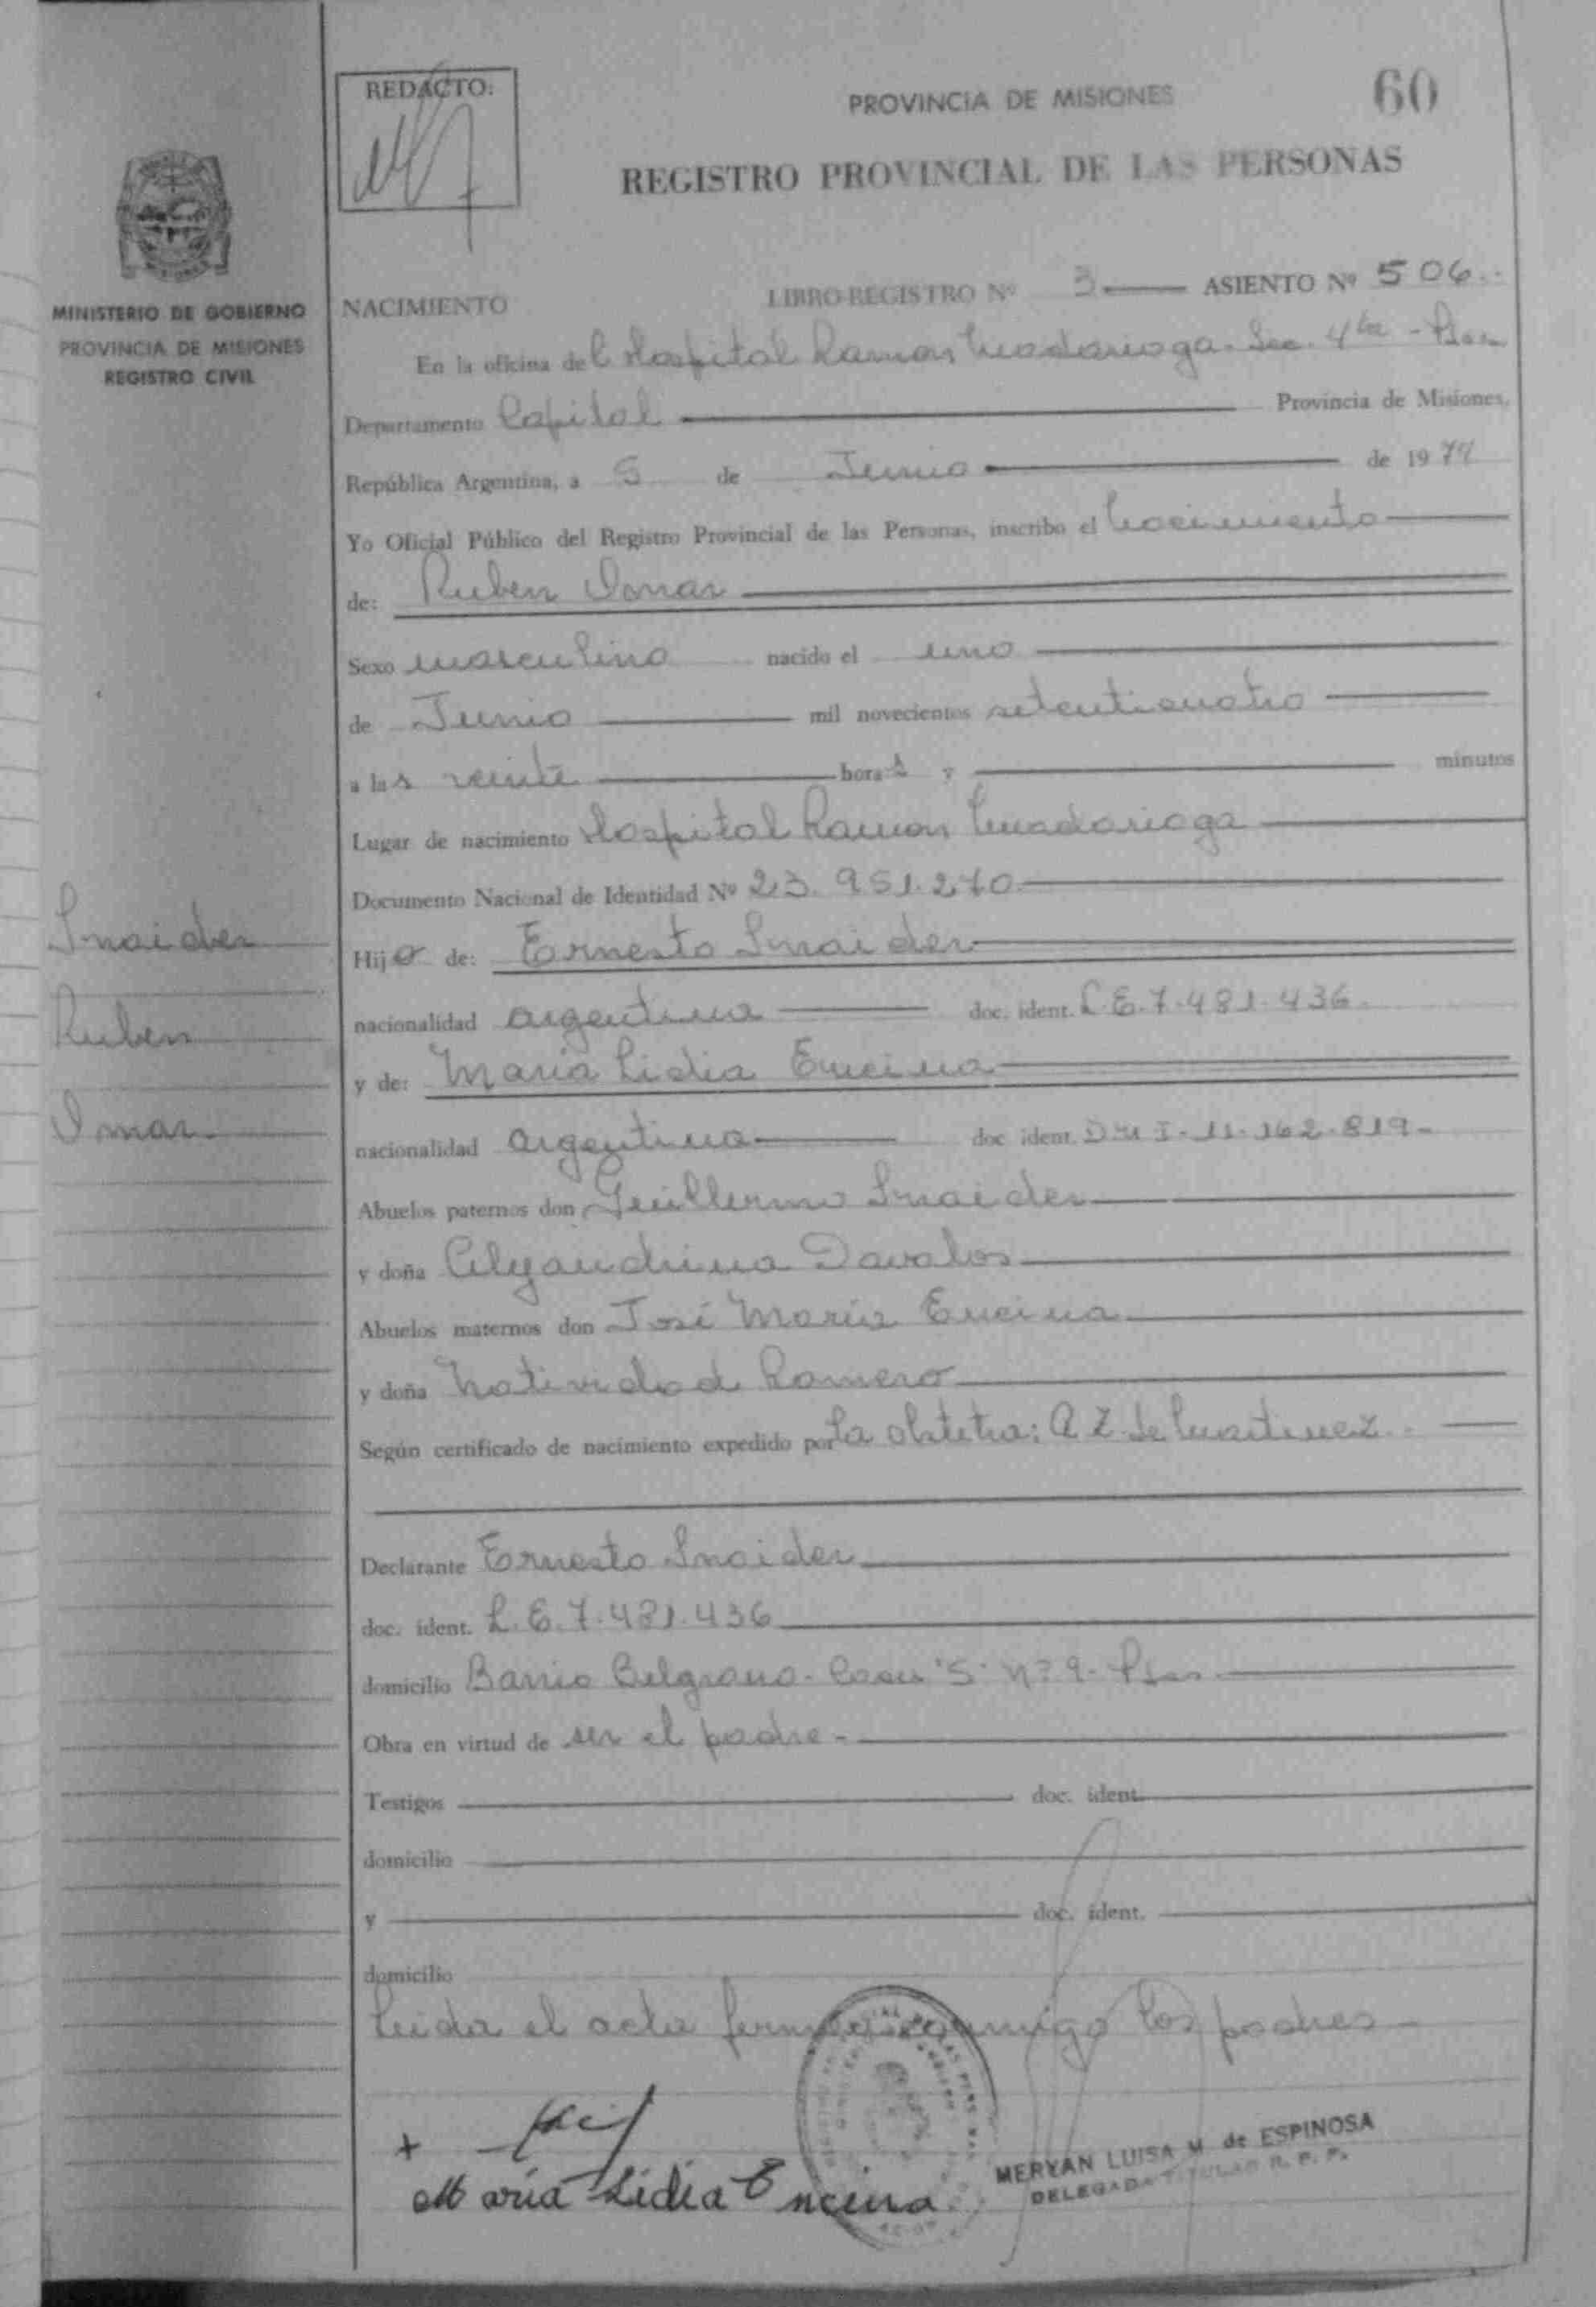 REDACTO:
PROVINCIA DE MISIONES
60
REGISTRO PROVINCIAL DE LAS PERSONAS
MINISTERIO DE GOBIERNO
PROVINCIA DE MISIONES
REGISTRO CIVIL
NACIMIENTO LIBRO-REGISTRO Nº 3 ASIENTO Nº 506
En la oficina del Hospital Ramon Madariaga. Sec. 4ta - Psas
Departamento Capital Provincia de Misiones,
República Argentina, a 5 de Junio de 1974
Yo Oficial Público del Registro Provincial de las Personas, inscribo el Nacimiento
de: Ruben Omar
Sexo masculino nacido el uno
de Junio mil novecientos setenticuatro
a las veinte horas y minutos
Lugar de nacimiento Hospital Ramon Madariaga
Documento Nacional de Identidad Nº 23.951.270
Snaider
Ruben
Omar
Hijo de: Ernesto Snaider
nacionalidad argentina doc. ident. L.E. 7.481.436
y de: Maria Lidia Encina
nacionalidad argentina doc ident. DNI-11-162-819-
Abuelos paternos don Guillermo Snaider
y doña Alejandrina Davalos
Abuelos maternos don José María Encina
y doña Natividad Romero
Según certificado de nacimiento expedido por la obstetra: A Z. de Martinez.
Declarante Ernesto Snaider
doc. ident. L.E. 7.481.436
domicilio Barrio Belgrano. Casa "S" Nº 9- Psas
Obra en virtud de ser el padre -
Testigos doc. ident.
domicilio
y doc. ident.
domicilio
Leida el acta firman conmigo los padres
+
Maria Lidia Encina
MERYAN LUISA M de ESPINOSA
DELEGADA TITULAR R. P. P.